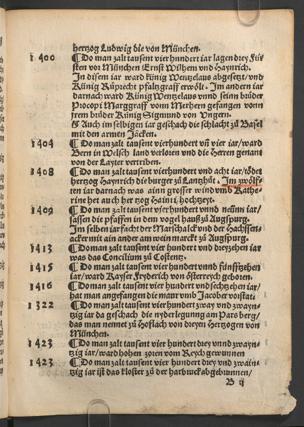 hertzog Ludwig die von München.
1400 ¶Do man zalt tausent vierhundert iar lagen drey Für
sten vor München Ernst Wilhelm vnd Haynrich.
In disem iar ward künig Wentzelaus abgesetzt/vnd
Künig Rüprecht pfaltzgraff erwölt. Im andern iar
darnach ward Künig Wentzelaus vnnd seinn brüder
Procopi Marggraff vonn Merhern gefangen vonn
jrem brüder Künig Sigmund von Vngern.
Es Auch im selbigen iar geschach die schlacht zu Basel
mit den armen Jäcken.
1404 ¶Do man zalt tausent vierhundert vñ vier iar/ward
Bern in Welsch land verloren vnd die Herren genant
von der Layter vertriben.
1408 ¶Do man zalt tausent vierhundert vnd acht iar/tödt
hertzog Haynrich die burger zu Lantzhüt. Im zwölf
ten iar darnach was ainn grosser wind vnd Kathe
rine het auch her tzog Hainri. hochtzeyt.
1409 ¶Do man zalt tausent vierhundert vnnd neünn iar/
sassen die pfaffen in dem vogel hauß zu Augspurg.
Im selben iar facht der Marschalck vnd der Hachsen
acker mit ain ander am wein marckt zu Augspurg.
1413 ¶Do man zalt tausent vierhundert vnd dreyzehen iar
was das Concilium zu Costentz.
1415 ¶Do man zalt tausent vierhundert vnnd fünfftzehen
iar/ward Kayser Fryderich von österreich geboren.
1416 ¶Do man zalt tausent vier hundert vnd sechtzehen iar/
hat man angefangen die maur vmb Jacober vorstat.
1322 ¶Do man zalt tausent vierhundert zway vnd zwayn/
tzig iar da geschach die nyderlegunng am Pars berg/
das man nennet zu Hoflach von dreyen Hertzogen von
München.
1423 ¶Do man zalt tausent vier hundert drey vnd zwayn/
tzig iar/ward hohen zoren vom Reych gewunnen
1423 ¶Do man zalt tausent vier hundert drey vnd zwain/
tzig iar ist das kloster zu der harbruck abgebrunnen/
B ij